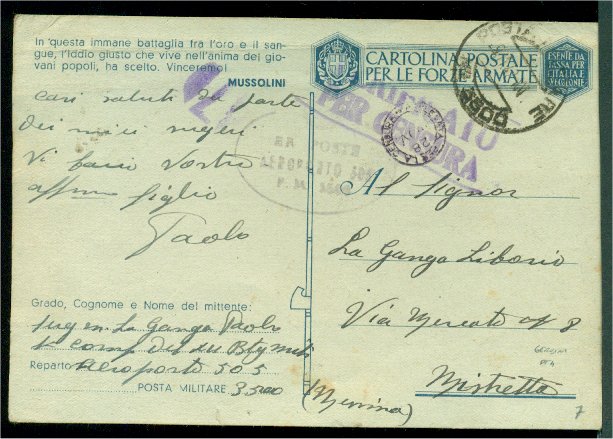 In questa immane battaglia fra l'oro e il san-
gue, l'Iddio giusto che vive nell'anima dei gio-
vani popoli, ha scelto. Vinceremo!
MUSSOLINI
cari saluti da parte
dei miei
Vi bacio Vostro
affmo figlio
Paolo
Grado, Cognome e Nome del mittente:
La Ganga Paolo
Reparto Aeroporto 505
POSTA MILITARE 3500
CARTOLINA POSTALE
PER LE FORZE ARMATE
ESENTE DA
TASSA PER
L'ITALIA E
VERIFICATO
PER CENSURA
RR POSTE
AEROPORTO 505
Al Signor
La Ganga Liborio
Via Mercato n° 8
Mistretta
(Messina)
7